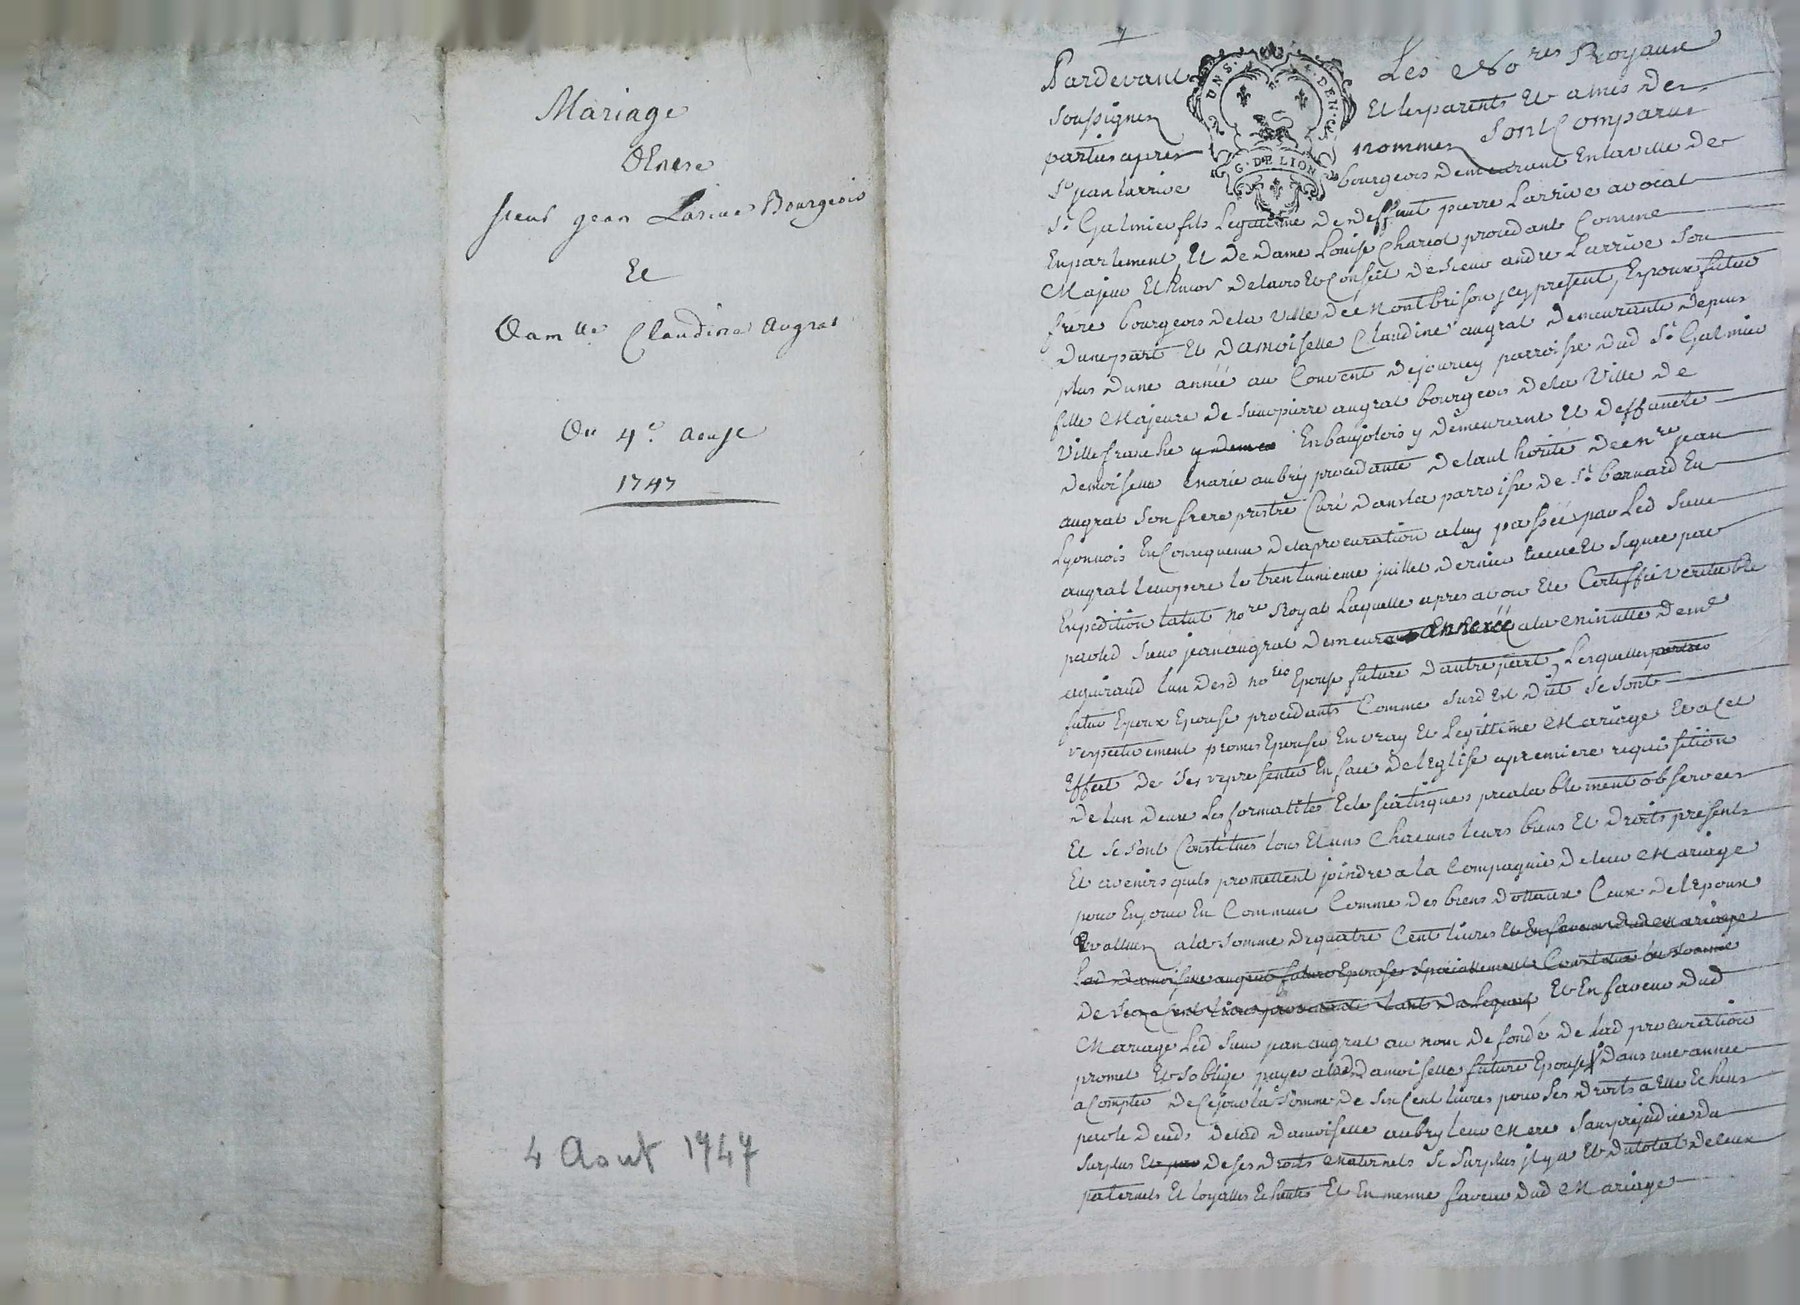 Mariage
Entre
sieur jean Larive Bourgeois
Et
Dam.lle Claudine Augrat
Du 4e. Aoust
1747
4 Aout 1747
Pardevant Les No.res Royaux
soussignez Et les parents Et amis des
parties apres nommez sont Comparus
Sr jean larrive bourgeois demeurant En la ville de
St. Galmier fils Legitime de deffunt pierre Larrive avocat
En parlement Et de dame Louise Chariot procedant Comme
Majeur Et de lavis Et Conseil de sieur andré Larrive son
frere bourgeois de la ville de Montbrison jcy present, Epoux futur
dune part Et damoiselle Claudine augrat demeurante depuis
plus dune année au Couvent de jourcey parroisse dud St. Galmier
fille Majeure de sieur pierre augrat bourgeois de la Ville de
Villefranche En baujolois y demeurant Et deffuncte
demoiselle Marie aubry procedante de lauthorité de mre jean
augrat son frere prestre Curé dans la parroisse de St. bernard En
Lyonnois En Consequence de la procuration a luy passée par Led sieur
augrat leur pere le trentunieme juillet dernier receue Et signée par
Expedition no.re Royal Laquelle apres avoir Eté Certiffié veritable
par led sieur jean augrat demeurera annexéé a la Minutte de me
aguiraud lun desd no.res Epouse future dautre part, Lesquelles parties
futur Epoux Epouse procedants Comme surd Est dict se sont
respectivement promis Epouser En vray Et Legittime Mariage Et a Cet
Effect de se representer En face de lEglise a premiere requisition
de lun deux Les formalités Eclesiastiques prealablement observees
Et se sont Constitués tous Et uns Chacuns leurs biens Et droits presents
Et avenirs quils promettent joindre a la Compagnie de leur Mariage
pour En jouir En Commun Comme des biens dottaux Ceux de lEpoux
Evalluez a la somme de quatre Cent livres Et En faveur dud Mariage
Lad damoiselle augrat future Epouse specialement la somme
de Cent livres provenante tant du Et En faveur dud
Mariage Led sieur jean augrat au nom de fondé de lad procuration
promet Et soblige payer a lad damoiselle future Epouse dans une année
a Compter de Ce jour la somme de six Cent livres pour ses droits a Elle Echeus
par le deceds de lad damoiselle aubry leur Mere sans prejudice du
surplus de ses droits Maternels si surplus il y a Et du total de ceux
paternels Et Echeutes Et En mesme faveur dud Mariage
UNS. DEN.
G. DE LION